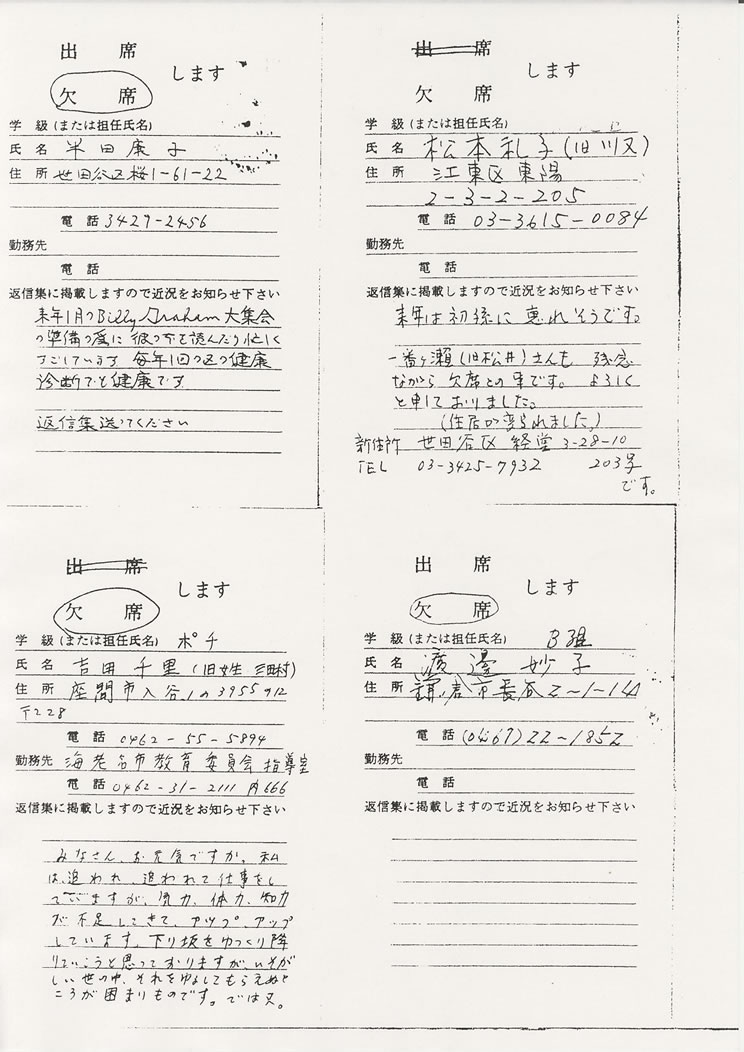 出 席
します
欠 席
学 級 (または担任氏名)
氏 名 半田康子
住 所 世田谷区桜1-61-22
電 話 3429-2456
勤務先
電 話
返信集に掲載しますので近況をお知らせ下さい
来年1月のBilly Graham大集会
の準備の為に
すごしています 毎年1回の区の健康
診断でも健康です
返信集送ってください
出 席
します
欠 席
学 級 (または担任氏名)
氏 名 松本礼子(旧川又)
住 所 江東区東陽
2-3-2-205
電 話 03-3615-0084
勤務先
電 話
返信集に掲載しますので近況をお知らせ下さい
来年は初孫に恵れそうです。
一番ヶ瀬(旧松井)さんも 残念
ながら 欠席との事です。よろしく
と申しておりました。
(住居が変られました。)
新住所 世田谷区 経堂 3-28-10
TEL 03-3425-7932 203号
です。
出 席
します
欠 席
学 級 (または担任氏名) ポチ
氏 名 吉田千里 (旧姓 三田村)
住 所 座間市入谷1の3955の12
〒228
電 話 0462-55-5894
勤務先 海老名市教育委員会 指導室
電 話 0462-31-2111 内666
返信集に掲載しますので近況をお知らせ下さい
みなさん、お元気ですか。私
は、追われ、追われて仕事をし
ていますが、気力、体力、知力
が不足してきて、アップ、アップ
しています。下り坂をゆっくり降
りていこうと思っておりますが、いそが
しい世の中、それをゆるしてもらえぬと
ころが困りものです。では又。
出 席
します
欠 席
学 級 (または担任氏名) B組
氏 名 渡邊 妙子
住 所 鎌倉市長谷2-1-14
電 話 (0467)22-1852
勤務先
電 話
返信集に掲載しますので近況をお知らせ下さい